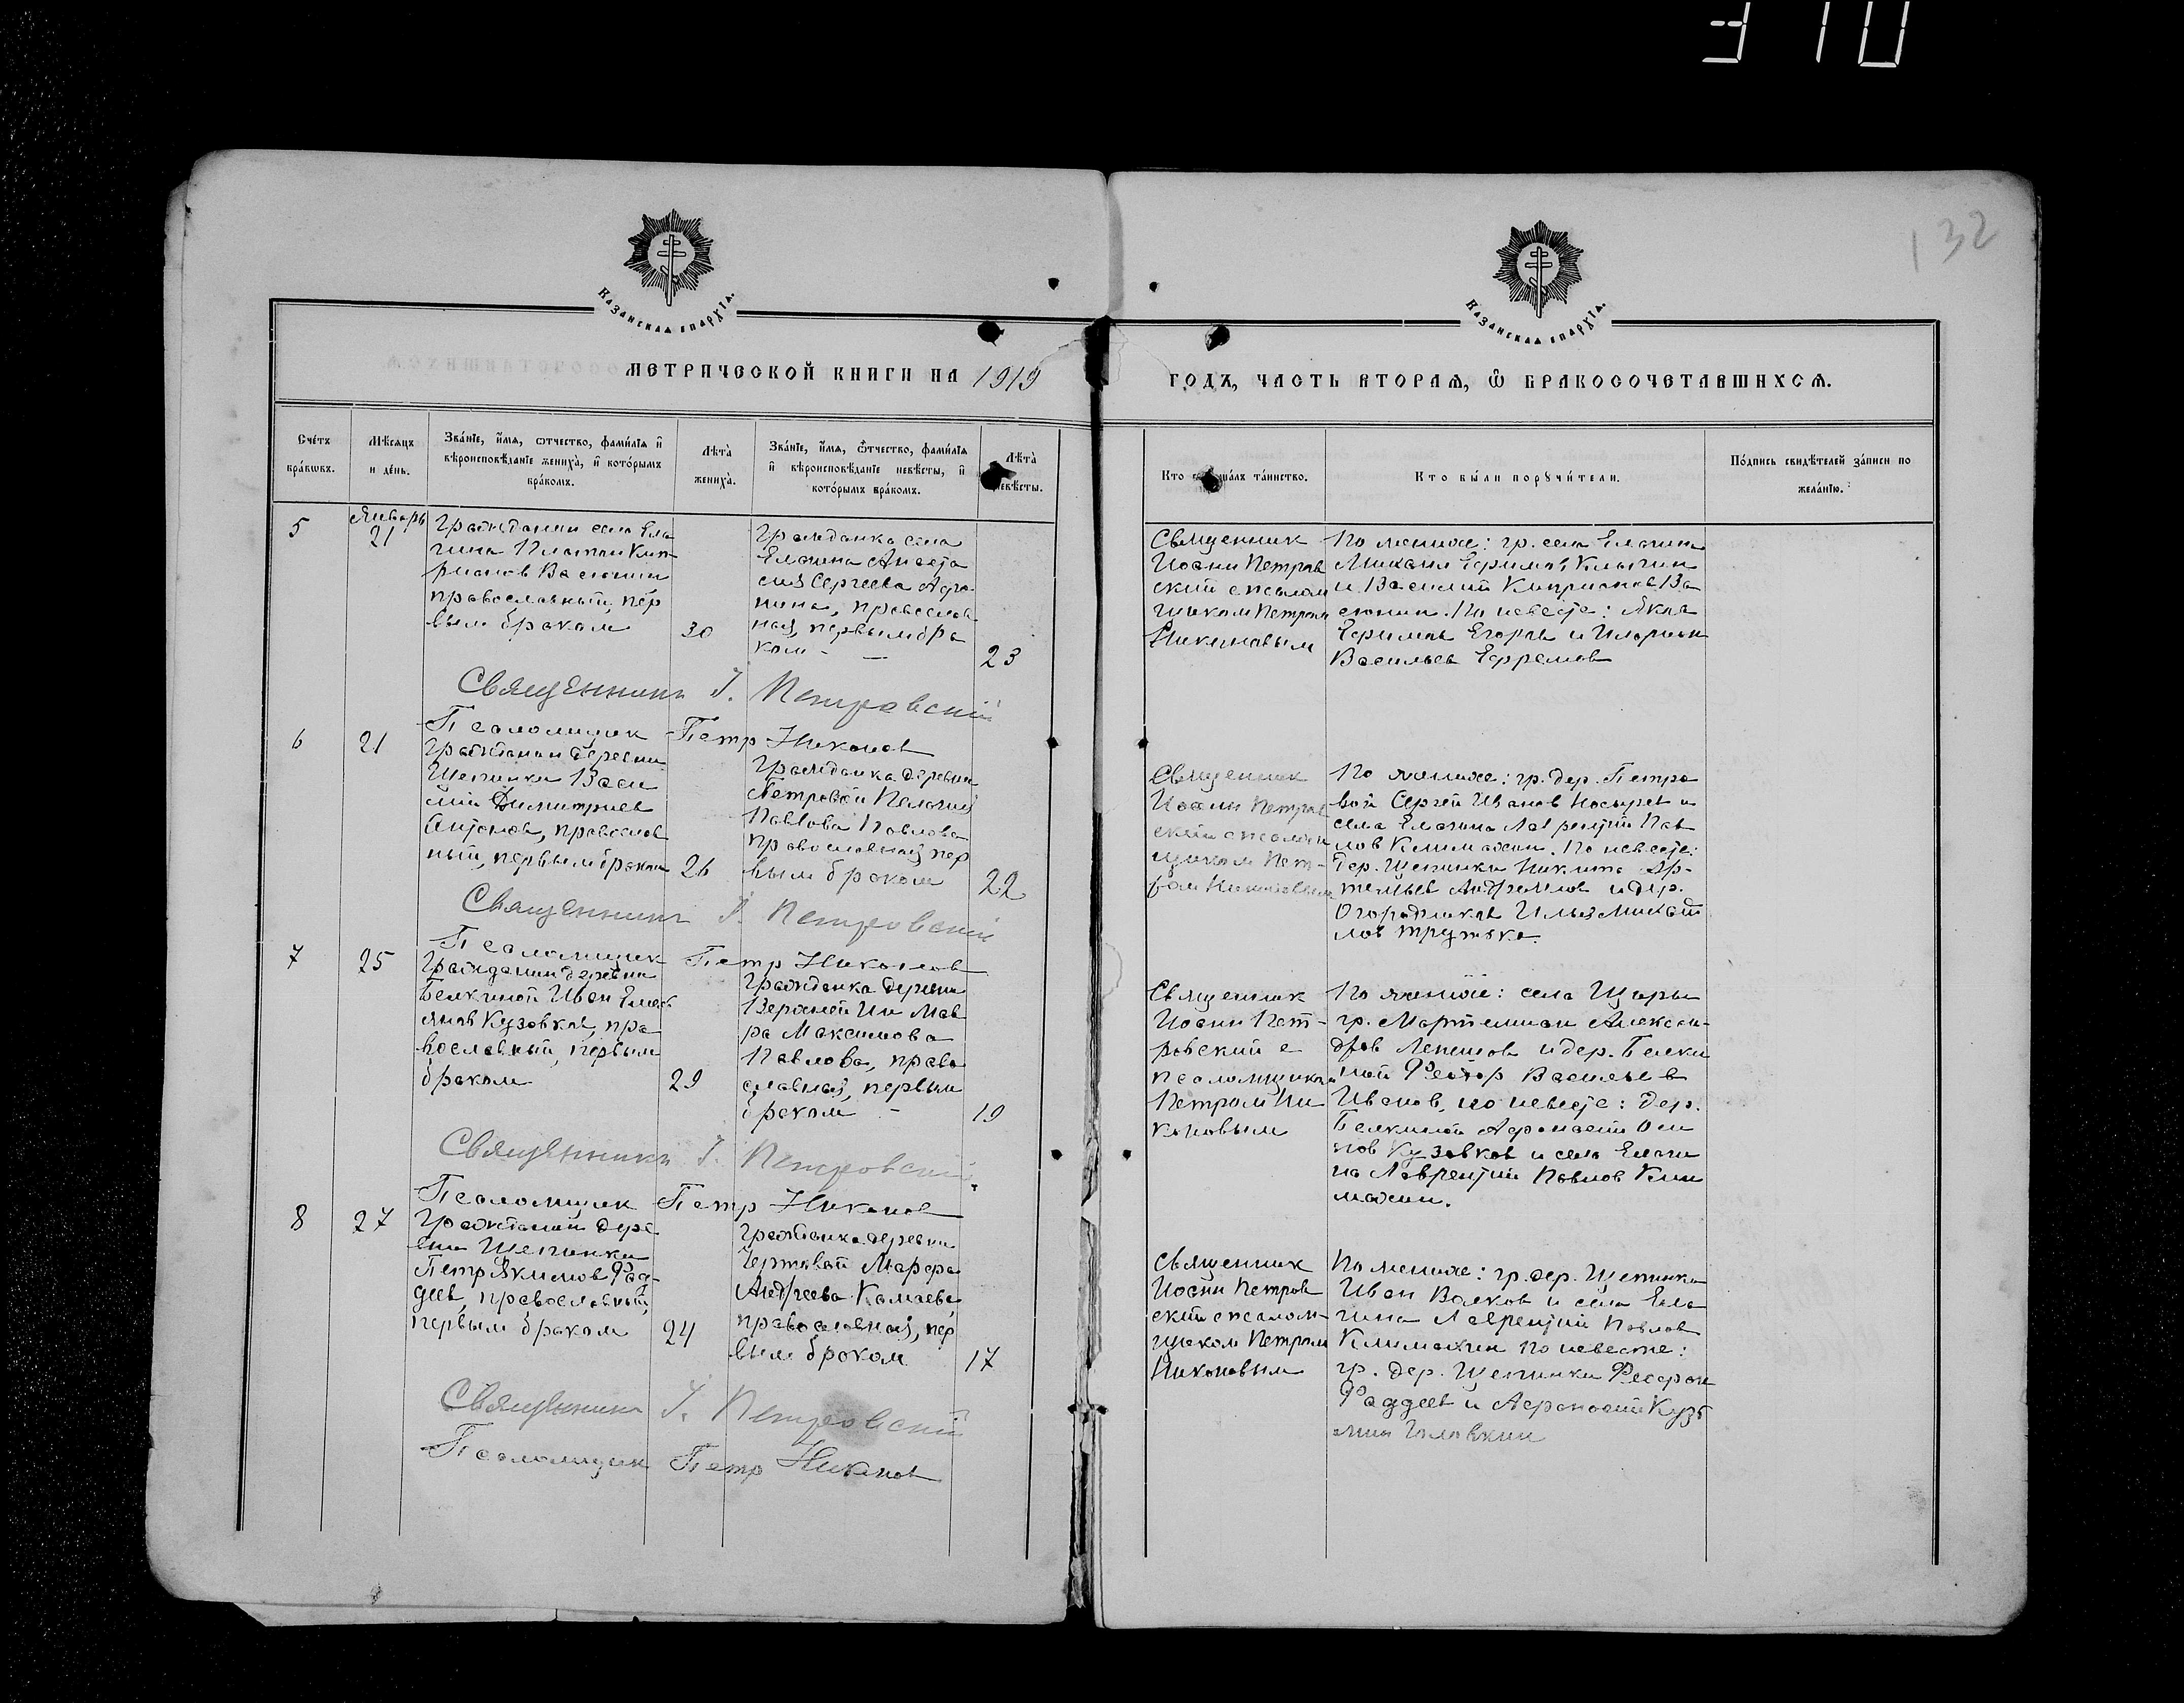 310
132
Казанская епархїѧ.
Казанская епархїѧ.
МЕТРИЧЕСКОЙ КНИГИ НА 1919
ГОДЪ, ЧАСТЬ ВТОРАѦ, Ѡ БРАКОСОЧЕТАВШИХСѦ.
Счéтъ брáкѡвъ.
Мѣсѧцъ и дéнь.
Звáнїе, и҆́мѧ, ѻ҆́тчество, фами́лїѧ и҆ вѣроисповѣ́данїе женихà, и҆ кото́рымъ брáкомъ.
Лѣтà женихà.
Звáнїе, и҆́мѧ, ѻ҆́тчество, фами́лїѧ и҆ вѣроисповѣ́данїе невѣ́сты, и҆ кото́рымъ брáкомъ.
Лѣтà невѣ́сты.
Кто совершáлъ тáинство.
Кто бы́ли порꙋчи́тели.
Пóдпись свидѣ́телей зáписи по желáнїю.
5
Январь
21
Гражданин села Ела
гина Платон Кип-
рианов Васюнин
православный, пер
вым браком
30
Гражданка села
Елагина Анаста
сия Сергеева Афо-
нина, православ
ная, первым бра
ком -
23
Священник
Иоанн Петров
ский с псалом
щиком Петром
Никоновым
По женихе: гр. села Елагина
Михаил Ефимов
и Василий Киприанов Ва
сюнин. По невесте: Яков
Ефимов Егоров и Иларион
Васильев Ефремов
Священникъ І. Петровскій
Псаломщик Петр Никонов
6
21
Гражданин деревни
Щепинки Васи
лий Димитриев
Антонов, православ
ный, первым браком
26
Гражданка деревни
Петровой Пелагия
Павлова Павлова
православная пер
вым браком
22
Священник
Иоанн Петров
ский с псалом
щиком Пет-
ром Никоновым
По женихе: гр. дер. Петро
вой Сергей Иванов Носырев и
села Елагина Лаврентий Пав
лов Климахин. По невесте:
дер. Щепинки Никита Ар-
темьев и дер.
Огородников Илья Михай
лов
Священникъ І. Петровскій
Псаломщик Петр Никонов
7
25
Гражданин деревни
Белкиной Иван Емель
янов Кузовков, пра
вославный, первым
браком
29
Гражданка деревни
Верхней Ии Мав
ра Максимова
Павлова, право
славная, первым
браком -
19
Священник
Иоанн Пет-
ровский с
псаломщиком
Петром Ни
коновым
По женихе: села Щары
гр. Мартемиан Алексан-
дров Лепешов и дер. Белки
ной Феодор Васильев
Иванов, по невесте: дер.
Белкиной Афанасий Оси
пов Кузовков и села Елаги
на Лаврентий Павлов Кли
махин.
Священникъ І. Петровскій.
Псаломщик Петр Никонов
8
27
Гражданин дере
вни Щепинки
Петр Якимов Фад-
деев, православный,
первым браком
24
Гражданка деревни
Чертовой Марфа
Андреева Камаева
православная, пер
вым браком
17
Священник
Иоанн Петров
ский с псалом-
щиком Петром
Никоновым
По женихе: гр. дер. Щепинки
Иван Волков и села Ела
гина Лаврентий Павлов
Климахин по невесте:
гр. дер. Щепинки
Фаддеев и Афанасий Кузь
мин Головкин
Священникъ І. Петровскій
Псаломщик Петр Никонов